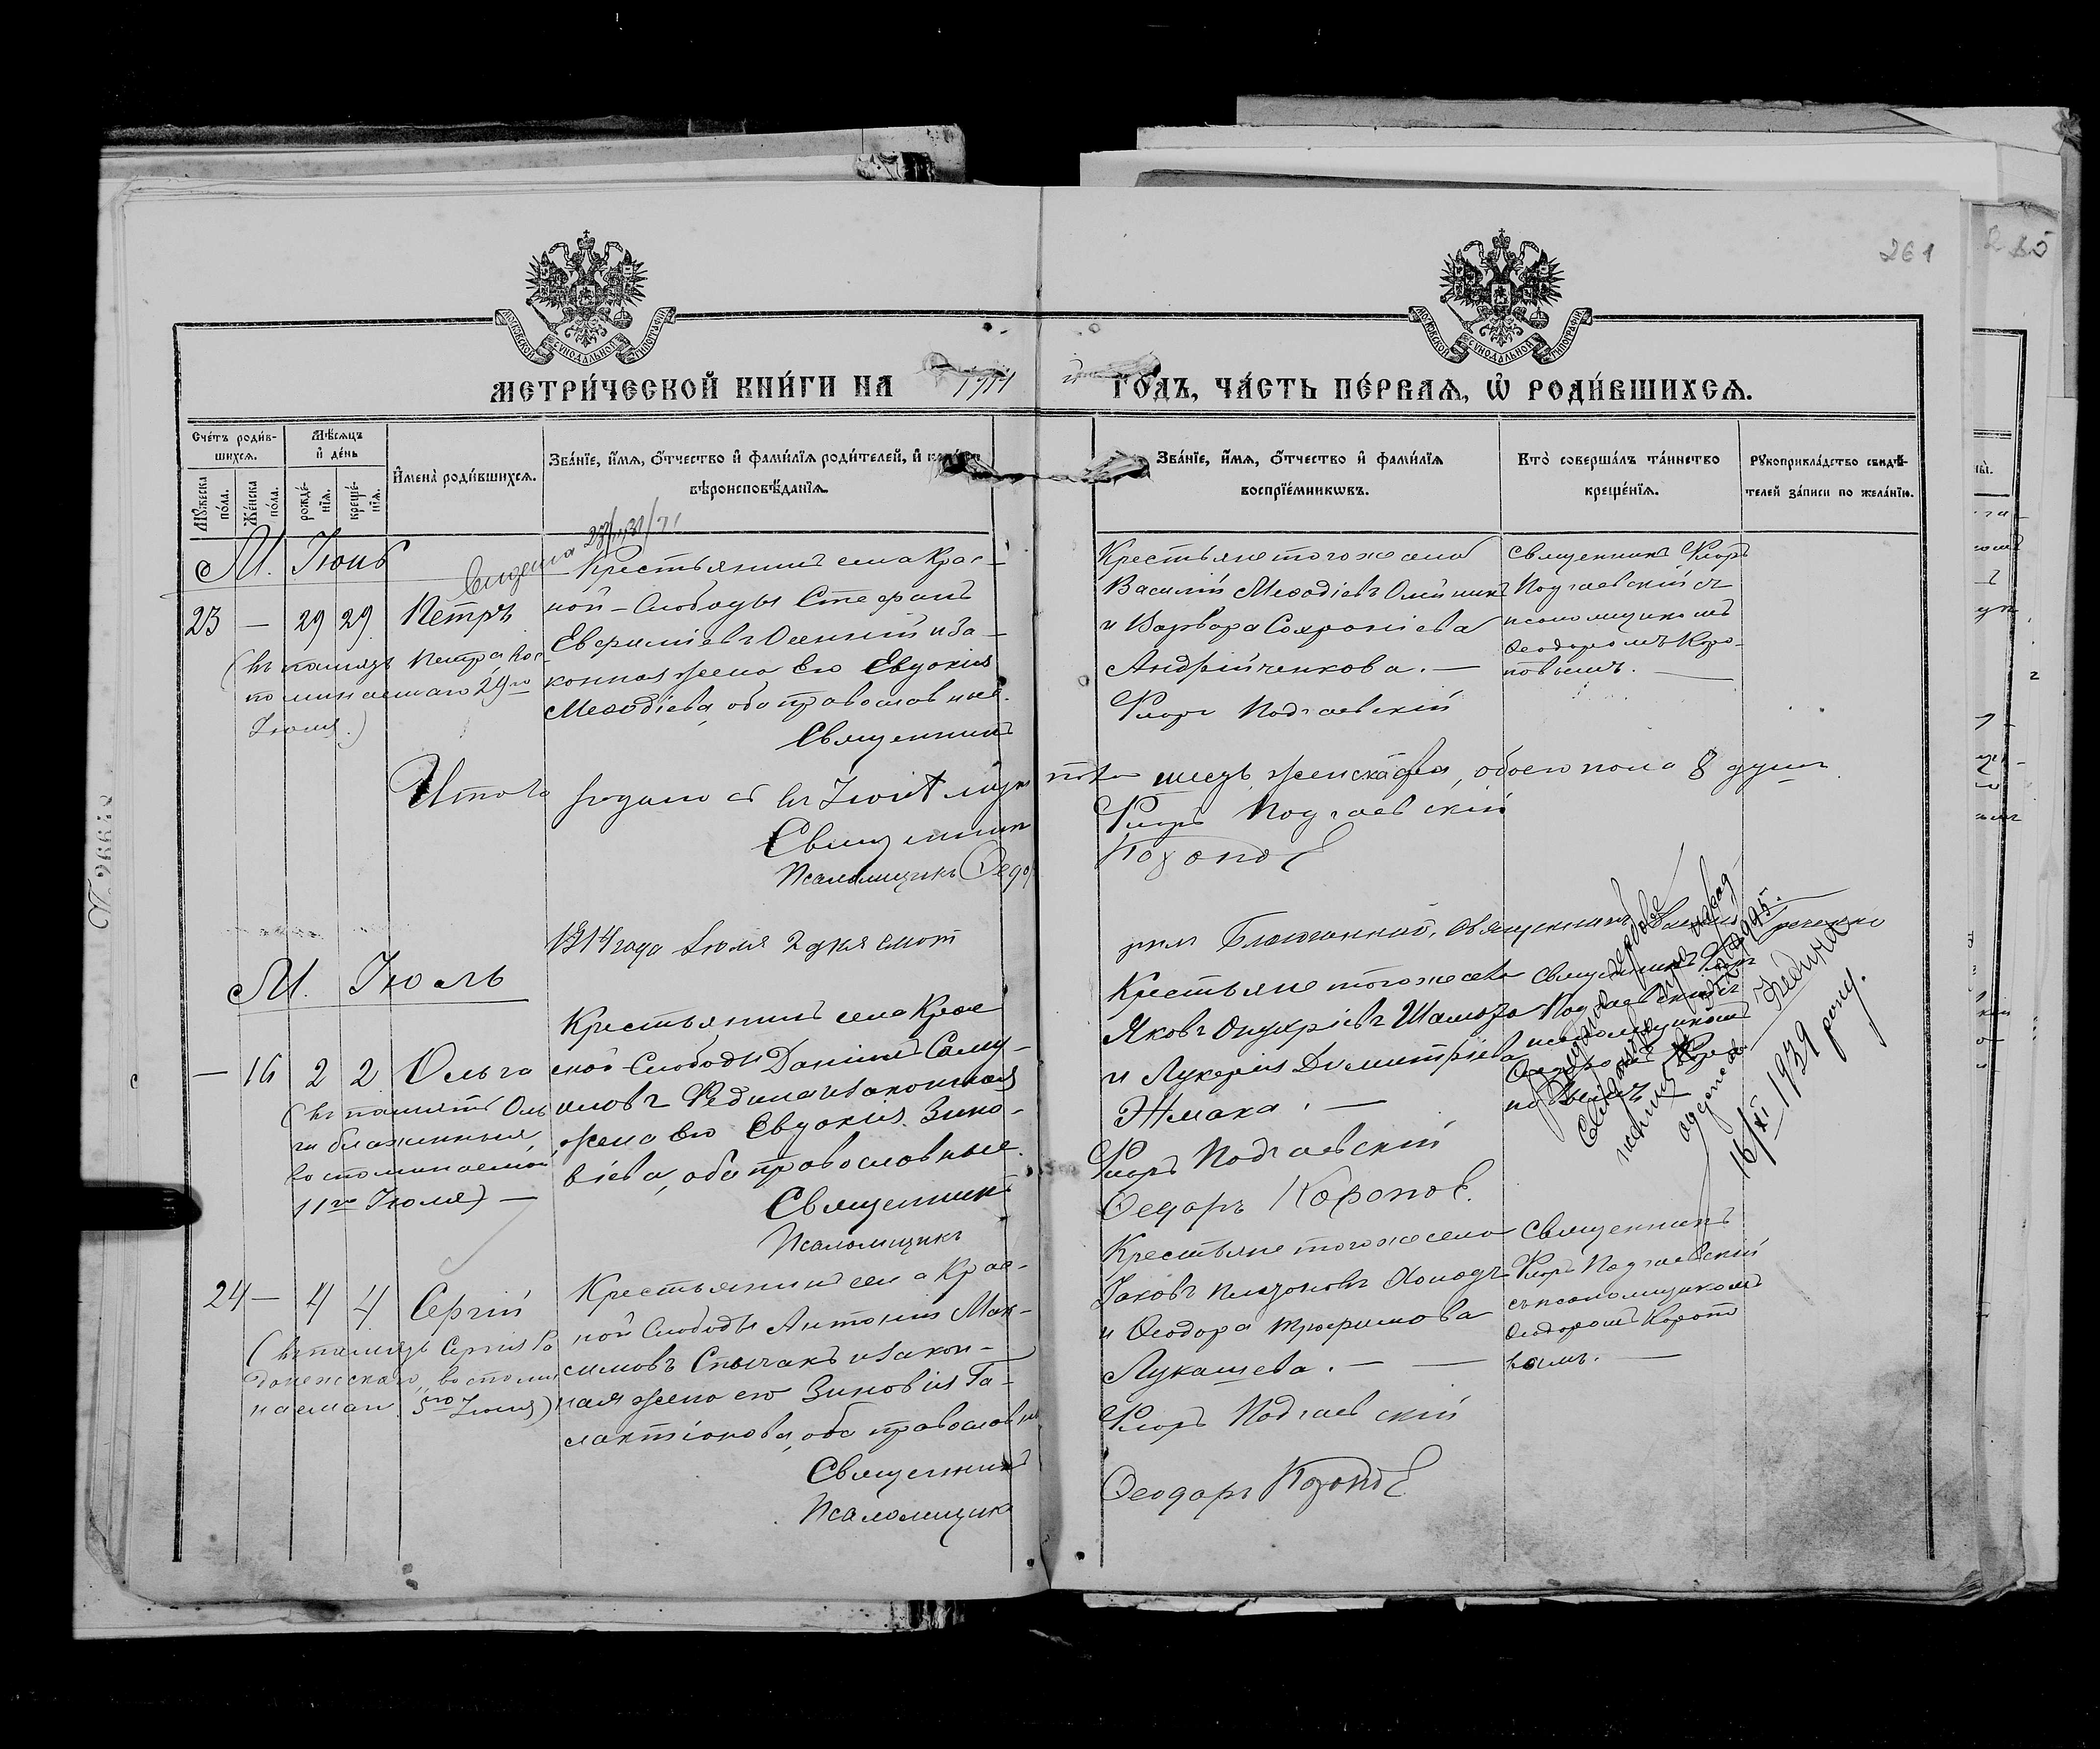 261
МЕТРИ́ЧЕСКОЙ КНИ́ГИ НА 1914 й ГО́ДЪ, ЧА́СТЬ ПЕ́РВАѦ, Ѡ҆ РОДИ́ВШИХСѦ.
Сче́тъ роди́в-
шихсѧ.
Мѣ́сѧцъ
и҆ де́нь
Му́жеска
по́ла.
Же́нска
по́ла.
рожде́-
нїѧ.
креще́-
нїѧ.
И҆мена̀ роди́вшихсѧ.
Зва́нїе, и҆́мѧ, ѻ҆́тчество и҆ фами́лїѧ роди́телей, и҆
вѣроисповѣ́данїѧ.
Зва́нїе, и҆́мѧ, ѻ҆́тчество и҆ фами́лїѧ
воспрїе́мникѡвъ.
Кто̀ соверша́лъ та́инство
креще́нїѧ.
Рꙋкоприкла́дство свидѣ́-
телей за́писи по жела́нїю.
М. Июнь
23 — 29 29 Петръ
(въ память Петра вос-
поминаемаго 29го
Июня.)
Крестьянинъ села Крас-
ной-Слободы Стефанъ
Евфиміевъ Осенній и за-
конная жена его Евдокія
Меѳодіева, оба православные.
Священникъ
Крестьяне того же села
Василій Меѳодіевъ Олійникъ
и Варвара Софроніева
Андрійченкова. —
Флоръ Подгаевскій
Священникъ Флоръ
Подгаевскій съ
псаломщикомъ
Ѳеодоромъ Коро-
повымъ. —
Итого родилось въ Іюнѣ муж. пола шесть, женска два, обоего пола 8 душъ.
Священникъ Флоръ Подгаевскій
Псаломщикъ Ѳедоръ Коропов
1914 года Іюля 2 дня смотрѣлъ Благочинный, Священникъ
М. Июль
— 16 2 2 Ольга
(въ память Оль
ги блаженныя,
воспоминаемой
11го Июля) —
Крестьянинъ села Крас
ной-Слободы Даніилъ Саму-
иловъ Федина и законная
жена его Евдокія Зино-
віева, оба православные.
Священникъ
Псаломщикъ
Крестьяне того же села
Яковъ Онуфріевъ Шамота
и Лукерія Димитріева
Жмака. —
Флоръ Подгаевскій
Ѳедоръ Коропов.
Священникъ Флоръ
Подгаевскій съ
псаломщикомъ
Федина
16/XI 1939 року.
24 — 4 4 Сергій
(въ память Сергія Ра
донежскаго, воспоми
наемаго 5го Июля)
Крестьянинъ села Крас-
ной Слободы Антоній Мак-
симовъ Спычакъ и закон-
ная жена его Зиновія Га-
лактіонова, оба православные
Священникъ
Псаломщикъ
Крестьяне того же села
Іаковъ Платоновъ Холодъ
и Ѳеодора Трофимова
Лукашева. —
Флоръ Подгаевскій
Ѳеодоръ Коропов
Священникъ
Флоръ Подгаевскій
съ псаломщикомъ
Ѳеодоромъ Коропо
вымъ. —